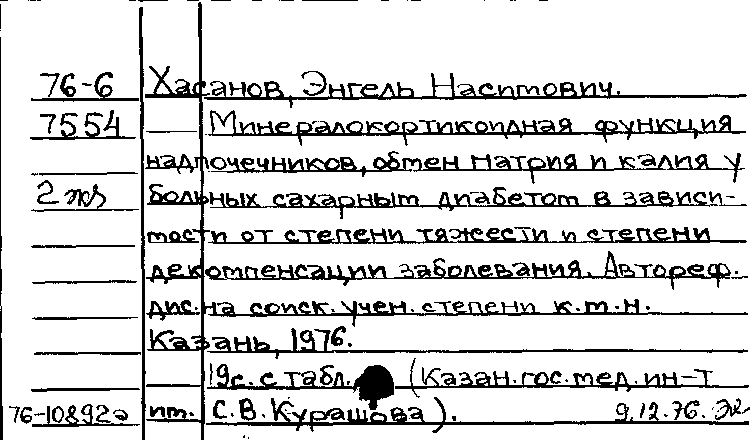 76-6 Хасанов, Энгель Насимович.
7554 — Минералокортикоидная функция
надпочечников, обмен натрия и калия у
2 экз больных сахарным диабетом в зависи-
мости от степени тяжести и степени
декомпенсации заболевания. Автореф.
дис. на соиск. учен. степени к.м.н.
Казань, 1976.
19с. с табл. (Казан. гос. мед. ин-т
76-10892а им. С.В. Курашова). 9.12.76.